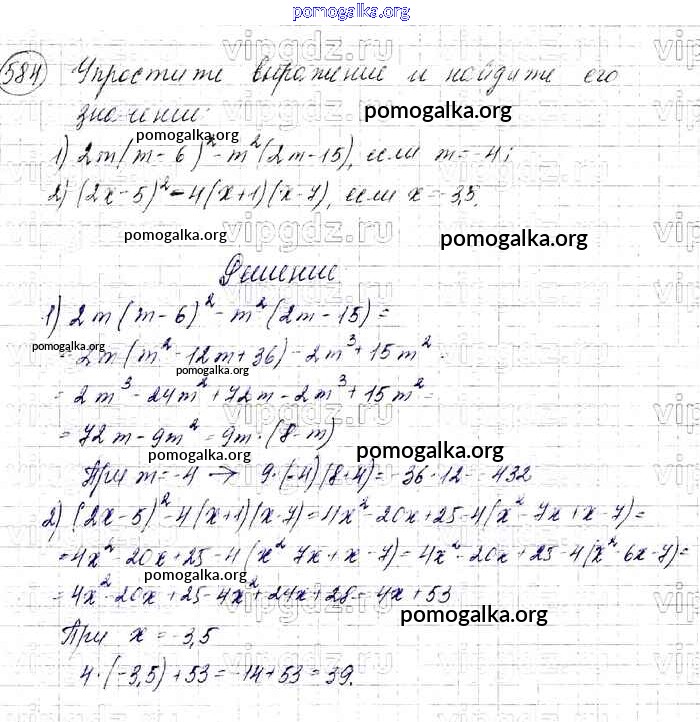 pomogalka.org
584 Упростите выражение и найдите его
значение:
pomogalka.org
pomogalka.org
1) 2m(m-6)²-m²(2m-15), если m=-4;
2) (2x-5)²-4(x+1)(x-7), если x=-3,5.
pomogalka.org
pomogalka.org
Решение
1) 2m(m-6)²-m²(2m-15)=
pomogalka.org
=2m(m²-12m+36)-2m³+15m²=
pomogalka.org
=2m³-24m²+72m-2m³+15m²=
=72m-9m²=9m·(8-m)
pomogalka.org
При m=-4 → 9·(-4)(8+4)=-36·12=-432
2) (2x-5)²-4(x+1)(x-7)=4x²-20x+25-4(x²-7x+x-7)=
=4x²-20x+25-4(x²-7x+x-7)=4x²-20x+25-4(x²-6x-7)=
pomogalka.org
=4x²-20x+25-4x²+24x+28=4x+53
pomogalka.org
При x=-3,5
4·(-3,5)+53=-14+53=39.